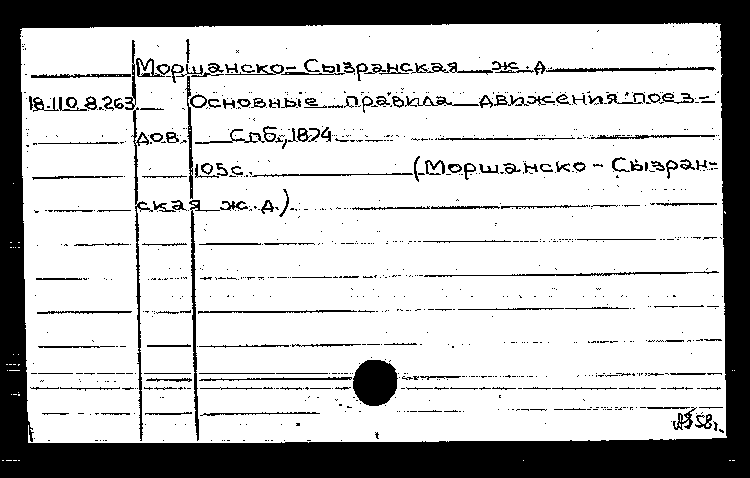 Моршанско-Сызранская ж.д
18.110.8.263 Основные правила движения поез-
дов. Спб., 1874
105с. (Моршанско-Сызран-
ская ж.д.)
58г.